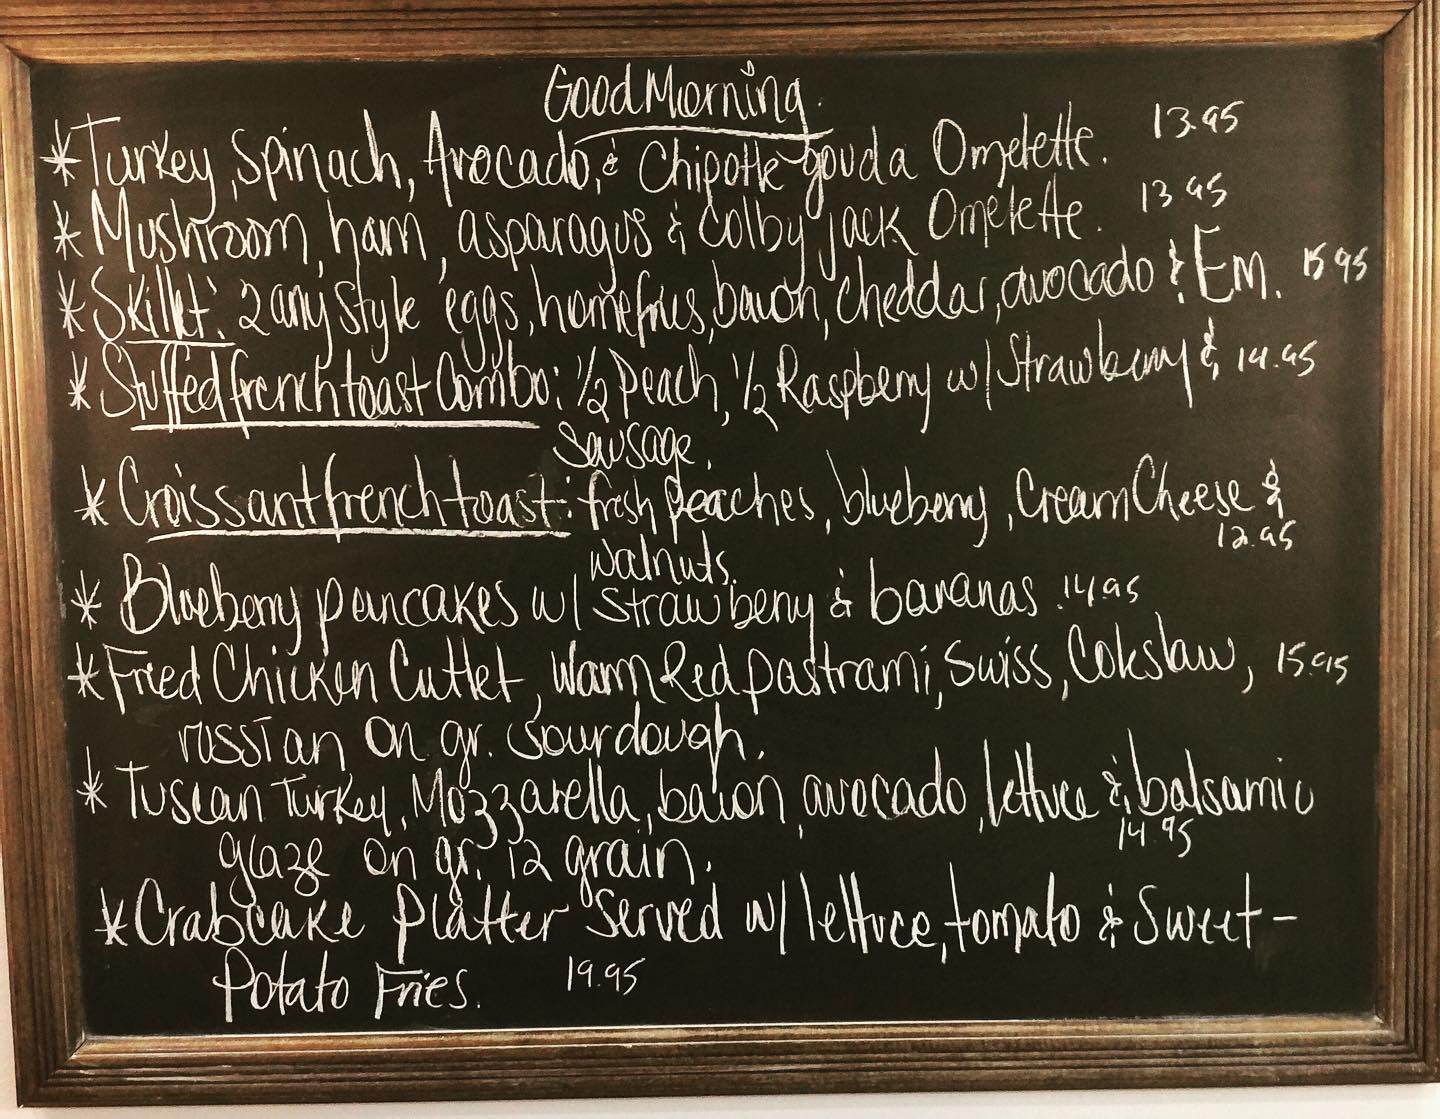 Good Morning.
*Turkey, Spinach, Avocado, & Chipotle gouda Omelette. 13.95
*Mushroom, ham, asparagus & Colby jack Omelette. 13.95
*Skillet: 2 any style eggs, homefries, bacon, cheddar, avocado & Em. 15.95
*Stuffed french toast Combo: 1/2 Peach, 1/2 Raspberry w/ Strawberry & 14.95
Sausage.
*Croissant french toast: fresh peaches, blueberry, Cream Cheese &
12.95
walnuts.
*Blueberry pancakes w/ Strawberry & bananas. 14.95
*Fried Chicken Cutlet, Warm Red pastrami, Swiss, Coleslaw, 15.95
russian on gr. Sourdough.
*Tuscan Turkey, Mozzarella, bacon, avocado, lettuce & balsamic
14.95
glaze on gr. 12 grain.
*Crabcake Platter Served w/ lettuce, tomato & Sweet-
Potato Fries. 19.95